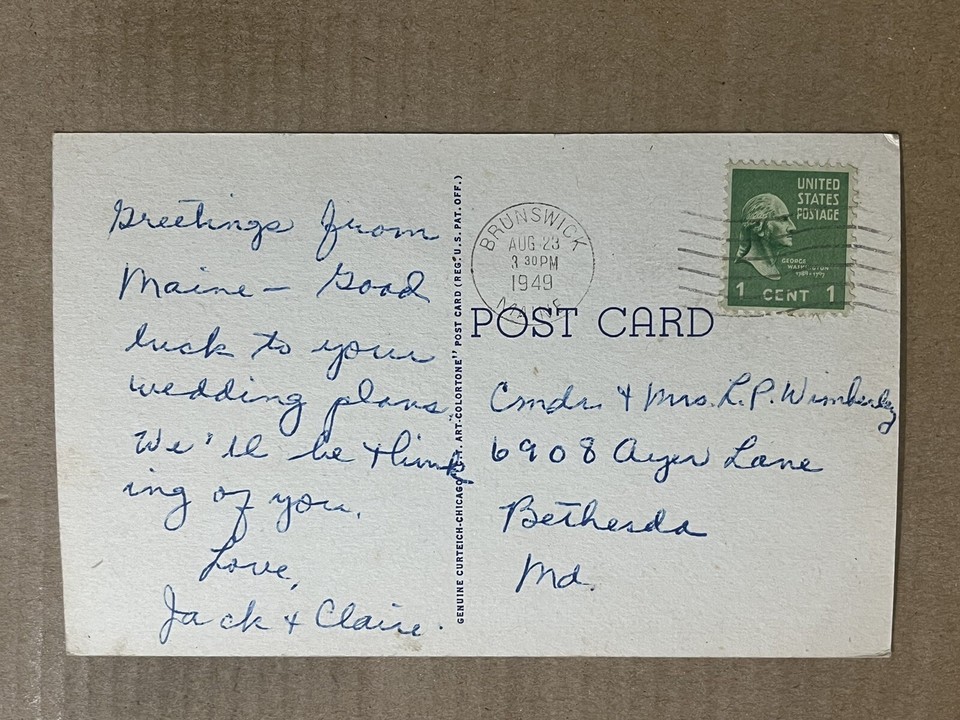 Greetings from
Maine – Good
luck to your
wedding plans.
We'll be think
ing of you.
Love,
Jack & Claire.
GENUINE CURTEICH-CHICAGO "C.T. ART-COLORTONE" POST CARD (REG. U.S. PAT. OFF.)
BRUNSWICK
AUG 23
3 30 PM
1949
MAINE
UNITED
STATES
POSTAGE
GEORGE
WASHINGTON
1789-1797
1 CENT 1
POST CARD
Cmdr. & Mrs. L. P. Wimberley
6908 Ayer Lane
Bethesda
Md.